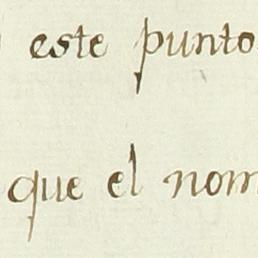 este punto
que el nom